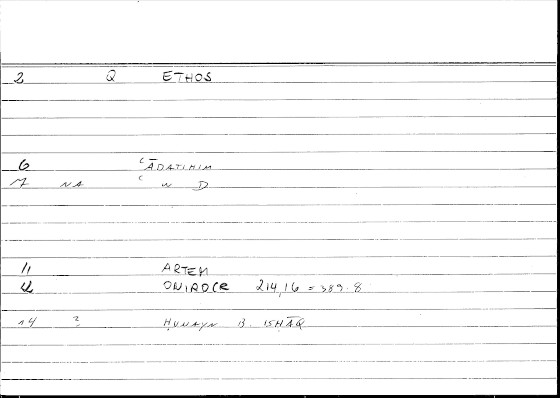 2 Q ETHOS
6 ʿĀDATIHIM
7 NA ʿ W D
11 ARTEM
12 ONIROCR 214,16 = 389.8
14 ? ḤUNAYN B. ISḤĀQ